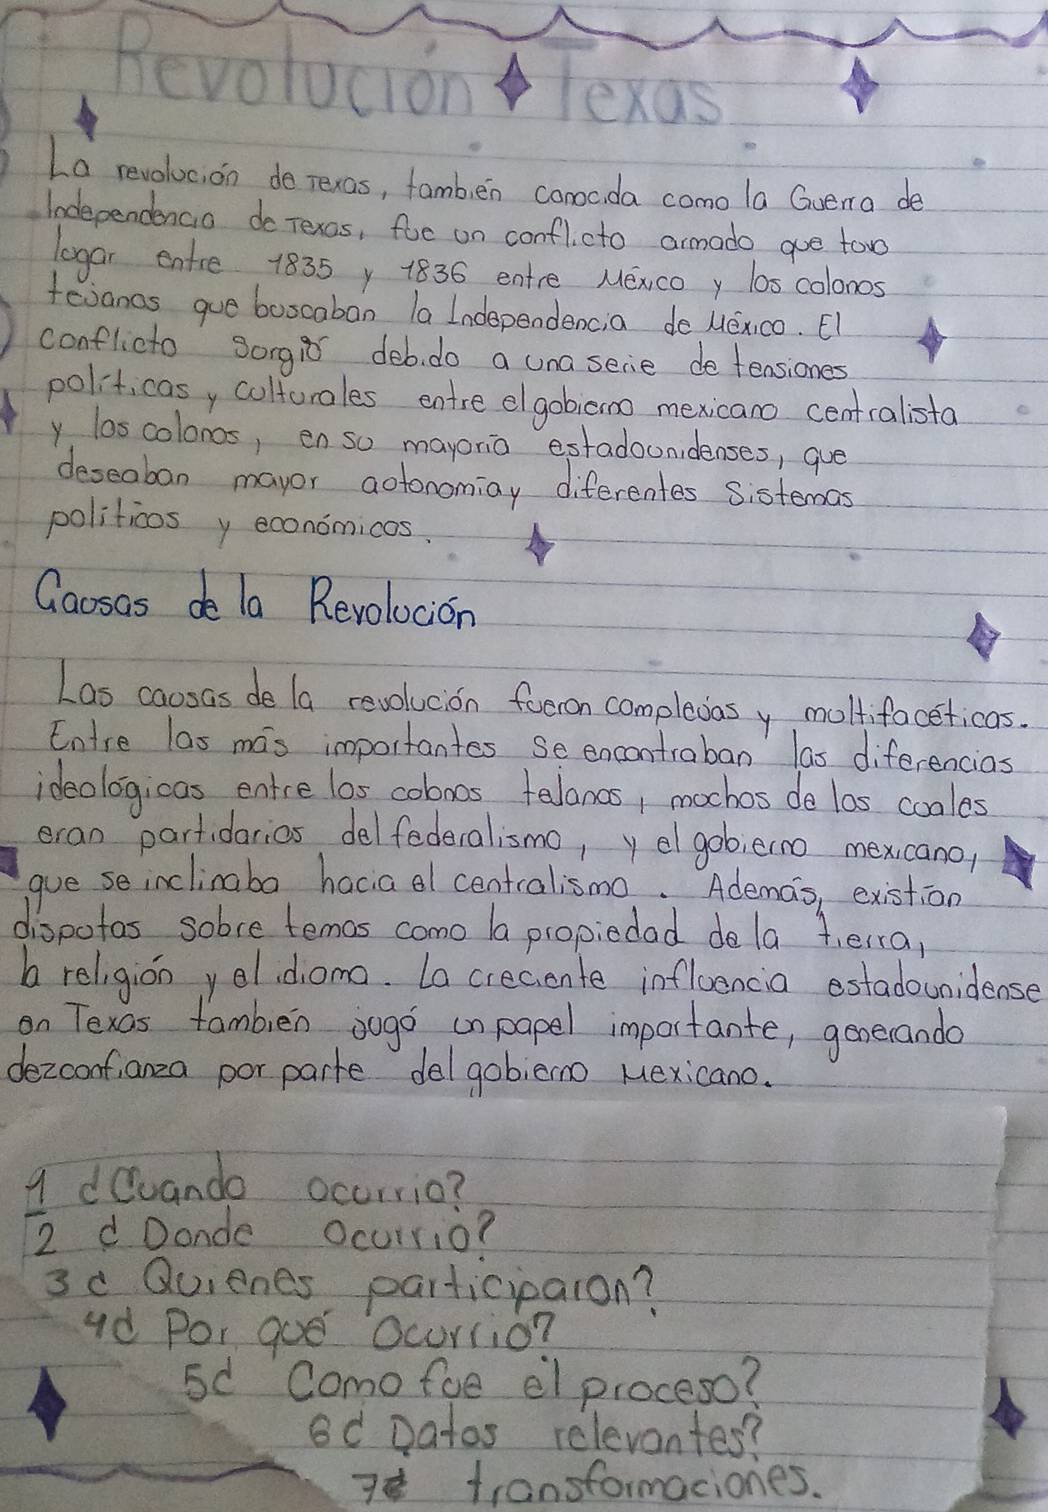 Revolución Texas
La revolución de Texas, también conocida como la Guerra de
Independencia de Texas, fue un conflicto armado que tuvo
lugar entre 1835 y 1836 entre México y los colonos
tejanos que buscaban la Independencia de México. El
conflicto surgió debido a una serie de tensiones
políticas y culturales entre el gobierno mexicano centralista
y los colonos, en su mayoría estadounidenses, que
deseaban mayor autonomía y diferentes sistemas
políticos y económicos.
Causas de la Revolución
Las causas de la revolución fueron complejas y multifacéticas.
Entre las más importantes se encontraban las diferencias
ideológicas entre los colonos tejanos, muchos de los cuales
eran partidarios del federalismo, y el gobierno mexicano,
que se inclinaba hacia el centralismo. Además, existían
disputas sobre temas como la propiedad de la tierra,
la religión y el idioma. La creciente influencia estadounidense
en Texas también jugó un papel importante, generando
dezconfianza por parte del gobierno Mexicano.
1 ¿Cuando ocurrio?
2 ¿Donde Ocurrio?
3 ¿Quienes participaron?
4 ¿Por qué Ocurrio?
5 ¿Como fue el proceso?
6 ¿Datos relevantes?
7 transformaciones.